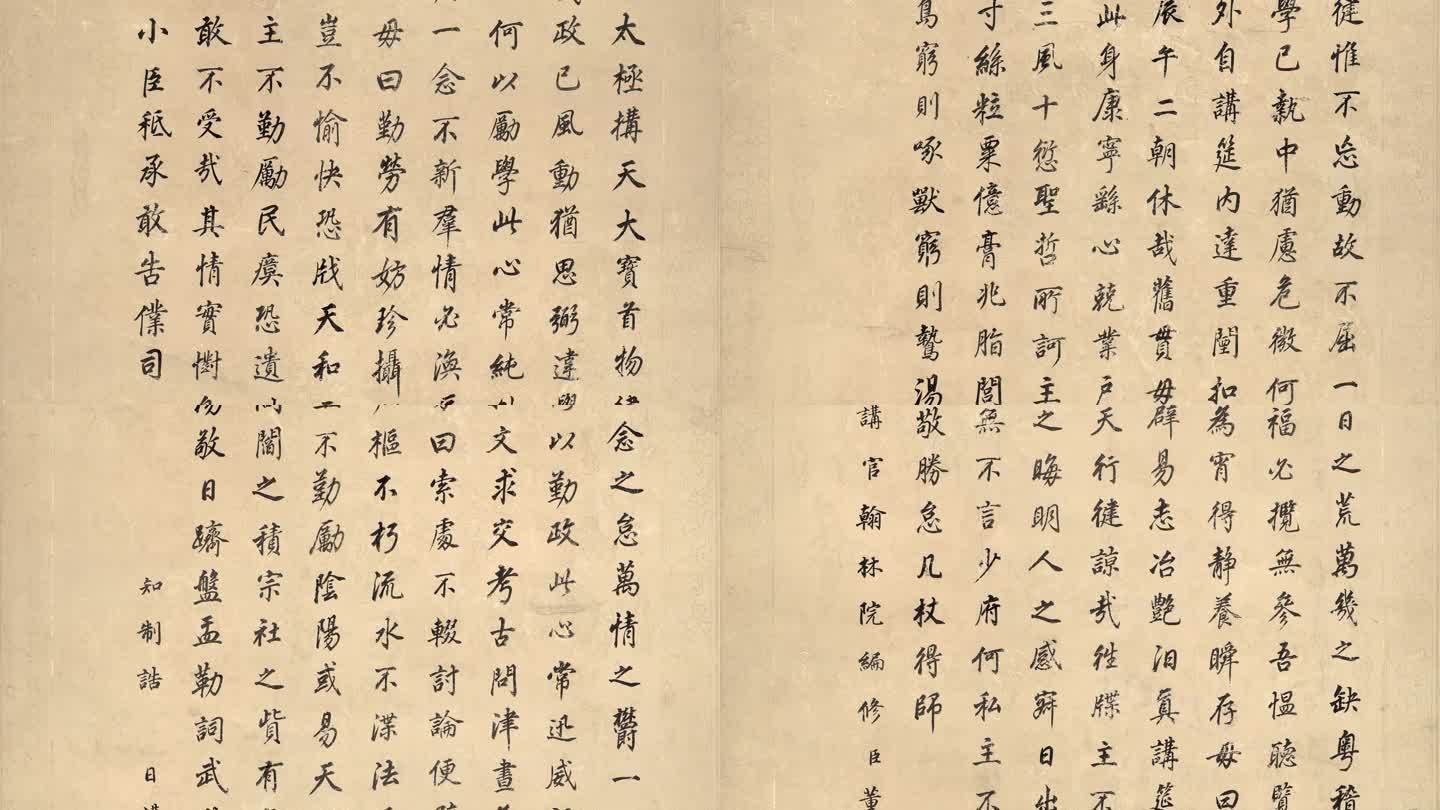 徤惟不忘動故不屈一日之荒萬幾之缺粵稽
學已執中猶慮危微何福必攬無參吾愠聽覽
外自講筵内達重閨扣為宵得静養瞬存毋曰
辰午二朝休哉舊貫毋辟易志冶艶汩真講筵
此身康寧繇心兢業戶天行徤諒哉往牒主不
三風十愆聖哲所訶主之晦明人之感寐日出
寸絲粒粟億膏兆脂閭無不言少府何私主不
鳥窮則啄獸窮則鷙湯敬勝怠几杖得師
講官翰林院編修臣董
太極搆天大寳首物念之怠萬情之欝一
政已風動猶思弼違以勤政此心常迅威
何以勵學此心常純文求交考古問津晝
一念不新羣情必渙曰索處不輟討論便
毋曰勤勞有妨珍攝樞不朽流水不渫法
豈不愉快恐戕天和不勤勵陰陽或易天
主不勤勵民瘼恐遺閽之積宗社之貲有
敢不受哉其情實懟敬日躋盤盂勒詞武
小臣秪承敢告僕司
知制誥日講